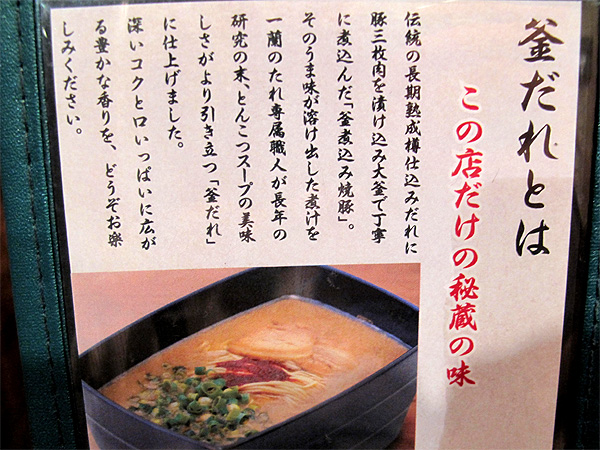 釜だれとは
この店だけの秘蔵の味
伝統の長期熟成樽仕込みだれに
豚三枚肉を漬け込み大釜で丁寧
に煮込んだ「釜煮込み焼豚」。
そのうま味が溶け出した煮汁を
一蘭のたれ専属職人が長年の
研究の末、とんこつスープの美味
しさがより引き立つ「釜だれ」
に仕上げました。
深いコクと口いっぱいに広が
る豊かな香りを、どうぞお楽
しみください。